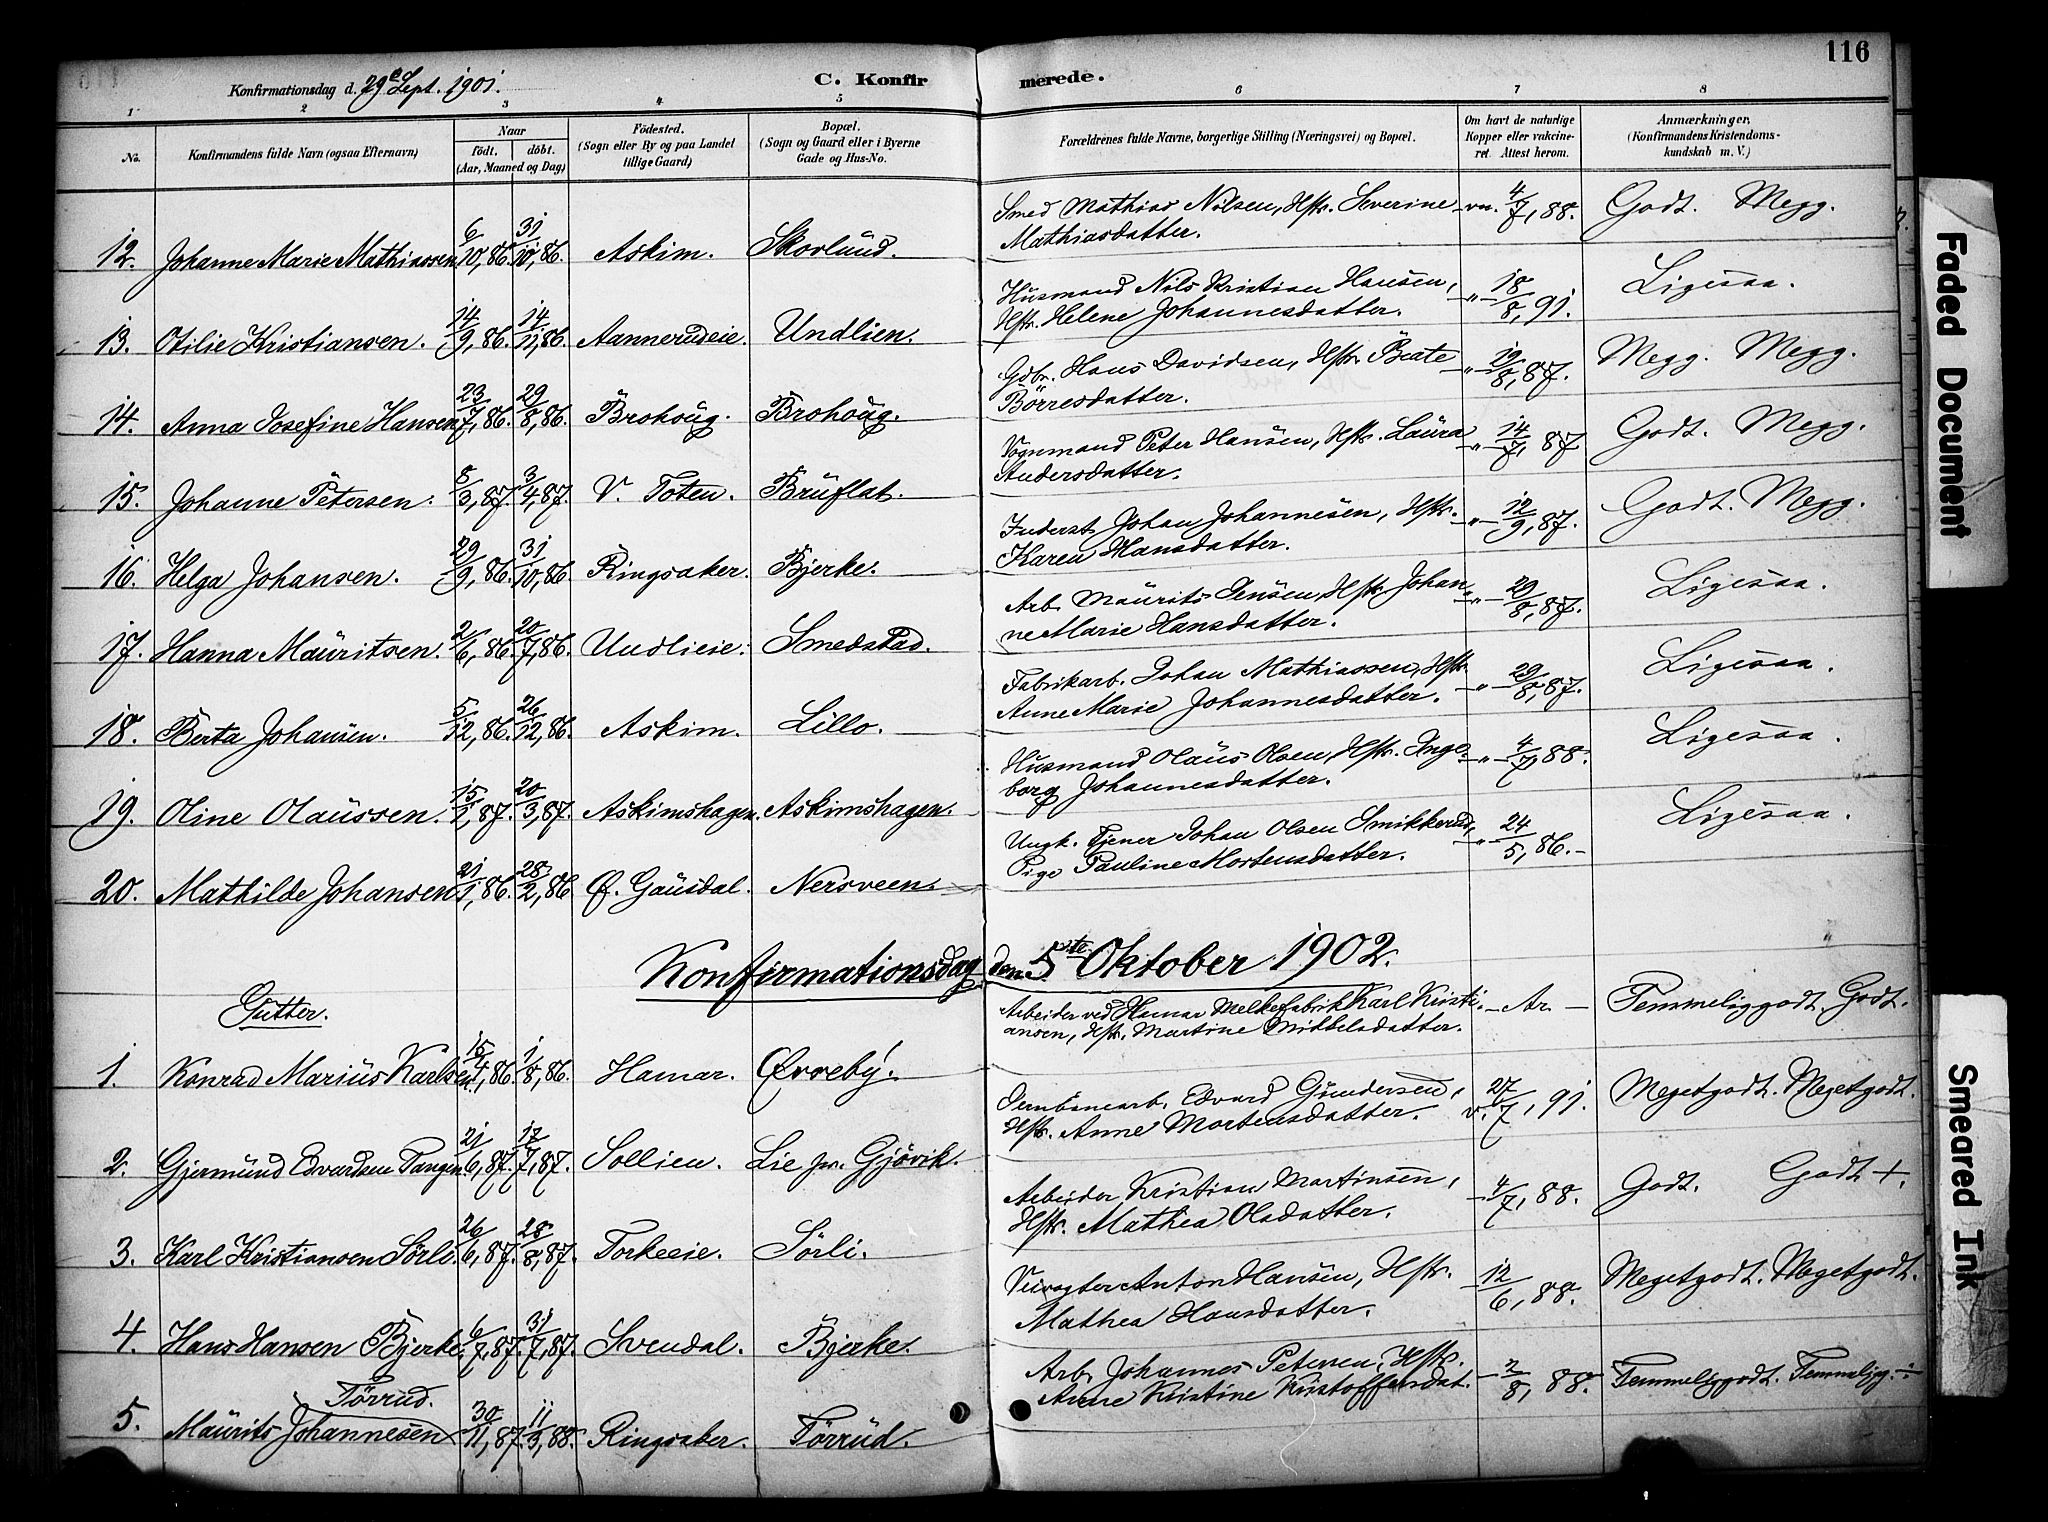 116
Konfirmationsdag d. 29de Sept. 1901.
C. Konfirmerede.
1 2 3 4 5 6 7 8
No.
Konfirmandens fulde Navn (ogsaa Efternavn)
Naar
født. døbt.
(Aar, Maaned og Dag)
Fødested.
(Sogn eller By og paa Landet
tillige Gaard)
Bopæl.
(Sogn og Gaard eller i Byerne
Gade og Hus-No.
Forældrenes fulde Navne, borgerlige Stilling (Næringsvei) og Bopæl.
Om havt de naturlige
Kopper eller vakcine-
ret. Attest herom.
Anmærkninger.
(Konfirmandens Kristendoms-
kundskab m. V.)
12. Johanne Marie Mathiassen 6/10, 86. 31/10, 86. Askim. Skovlund. Smed Mathias Nilsen, Hstr. Severine
Mathiasdatter. vn. 4/7, 88. Godt. Megg.
13. Otilie Kristiansen. 14/9, 86. 14/11, 86. Aannerudeie. Undlien. Husmand Nils Kristian Hansen,
Hstr. Helene Johannesdatter. -"- 18/8, 91. Ligesaa.
14. Anna Josefine Hansen 23/7, 86. 29/8, 86. Brohoug. Brohoug. Gdbr. Hans Davidsen, Hstr. Beate
Börresdatter. -"- 19/8, 87. Megg. Megg.
15. Johanne Petersen. 8/3, 87. 3/4, 87. V. Toten. Bruflat. Vognmand Peter Hansen, Hstr. Laura
Andersdatter. -"- 14/7, 87 Godt. Megg.
16. Helga Johansen. 29/9, 86. 31/10, 86. Ringsaker. Bjerke. Inderst Johan Johannesen, Hstr.
Karen Hansdatter. -"- 12/9, 87. Godt. Megg.
17. Hanna Mauritsen. 2/6, 86. 20/7, 86. Undlieie. Smedstad. Arb. Maurits Jensen, Hstr. Johan-
ne Marie Hansdatter. -"- 29/8, 87. Ligesaa.
18. Berta Johansen. 5/12, 86. 26/12, 86. Askim. Lillo. Fabrikarb. Johan Mathiassen, Hstr.
Anne Marie Johannesdatter. -"- 29/8, 87. Ligesaa.
19. Oline Olaussen. 15/2, 87. 20/3, 87. Askimshagen. Askimshagen. Husmand Olaus Olsen, Hstr. Inge-
borg Johannesdatter. -"- 4/7, 88. Ligesaa.
20. Mathilde Johansen 21/1, 86. 28/2, 86. Ø. Gausdal. Nersveen. Ungk. Tjener Johan Olsen Smikkerud,
Pige Pauline Mortensdatter. -"- 24/5, 86. Ligesaa.
Konfirmationsdag den 5te Oktober 1902.
Gutter.
1. Konrad Marius Karlsen 15/4, 86. 1/8, 86. Hamar. Øvreby. Arbeider ved Hamar Melkefabrik Karl Kristi-
ansen, Hstr. Martine Mikkelsdatter. - Ar - Temmeliggodt. Godt.
2. Gjermund Edvardsen Tangen 21/6, 87. 17/7, 87. Sollien. Lie pr. Gjøvik. Jernbanearb. Edvard Gundersen,
Hstr. Anne Mortensdatter. v. 27/7, 91. Megetgodt. Megetgodt.
3. Karl Kristiansen Sörli. 26/6, 87. 28/8, 87. Torkeeie. Sörli. Arbeider Kristian Martinsen,
Hstr. Mathea Olsdatter. - 4/7, 88. Godt. Godt +.
4. Hans Hansen Bjerke. 6/7, 87. 31/7, 87. Svendal. Bjerke. Anton Hansen, Hstr.
Mathea Hansdatter. - 12/6, 88. Megetgodt. Megetgodt.
Törrud.
5. Maurits Johannesen 30/11, 87. 11/3, 88. Ringsaker. Törrud. Arb. Johannes Petersen, Hstr.
Anne Kristine Kristoffersdat. - 2/8, 88. Temmeliggodt. Temmelig.
Faded Document
Smeared Ink